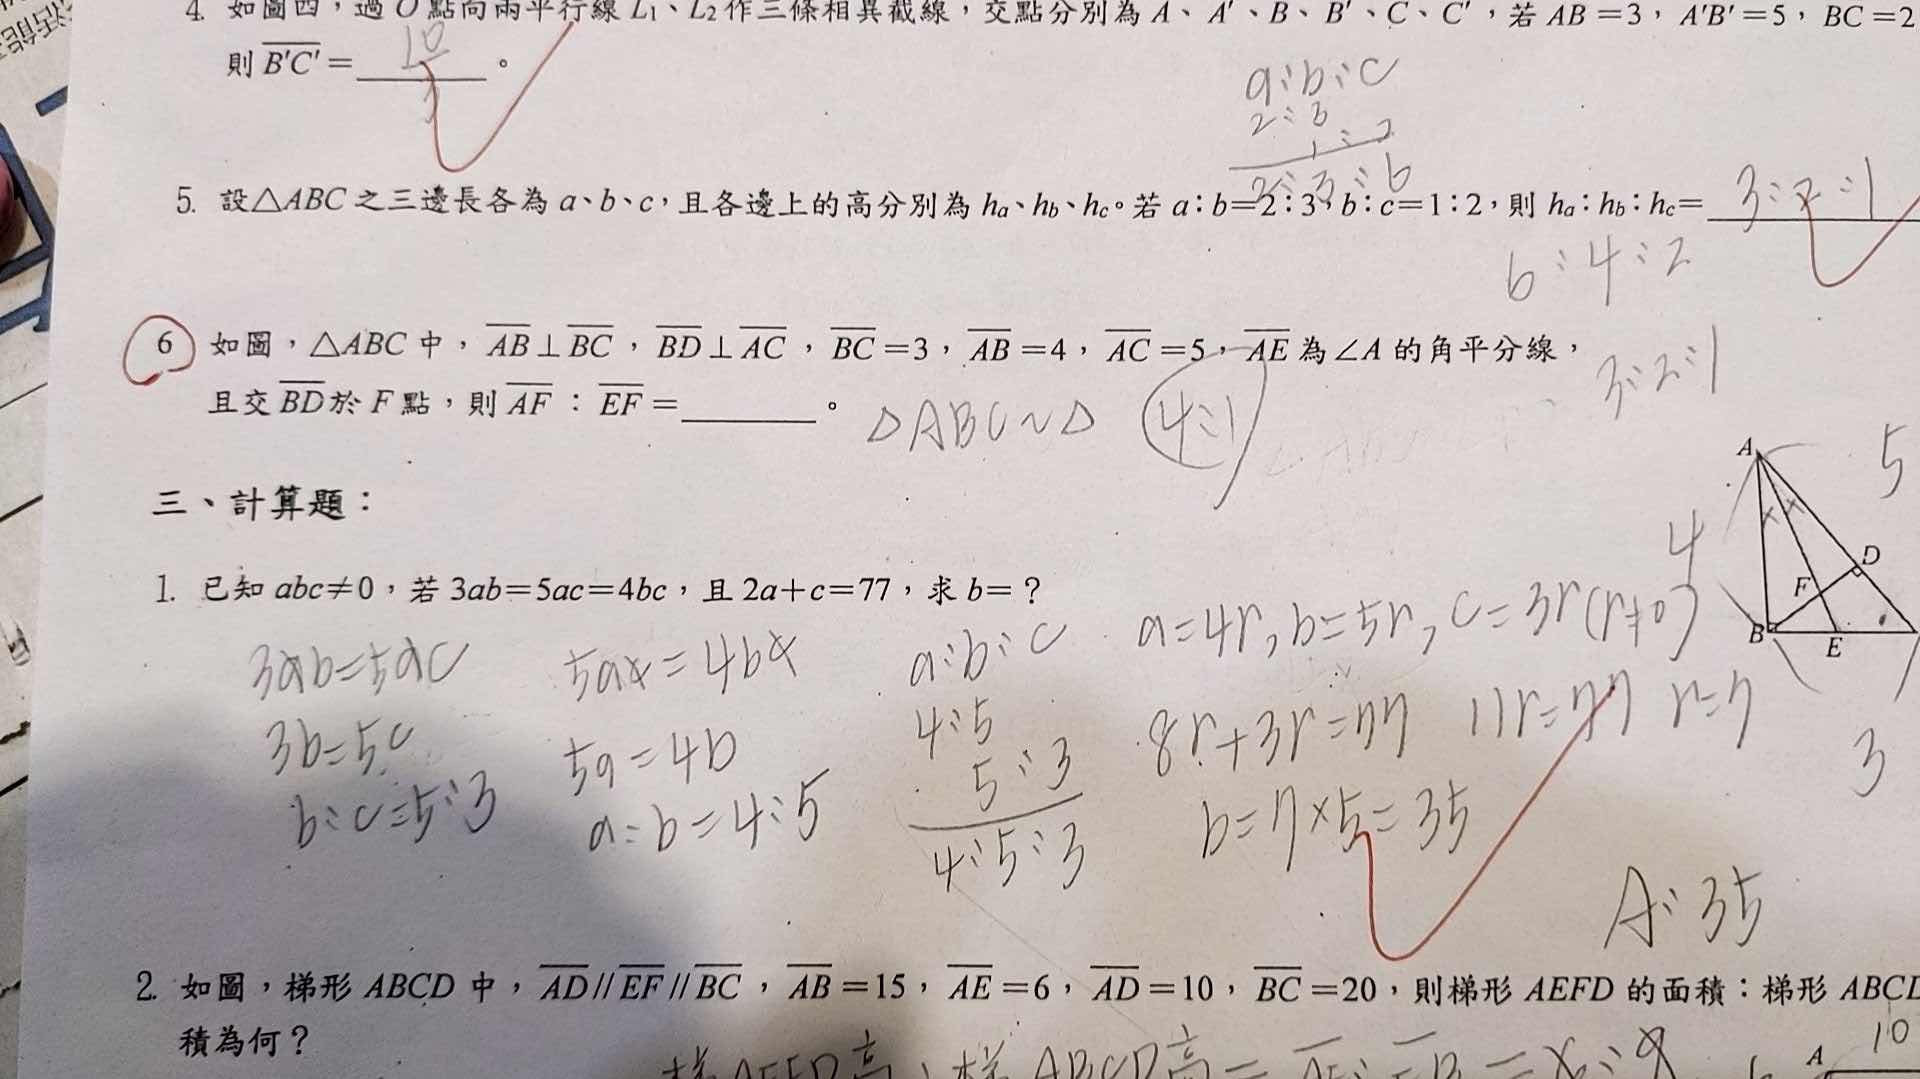 4. 如圖四，過 O 點向兩平行線 L₁、L₂ 作三條相異截線，交點分別為 A、A'、B、B'、C、C'，若 AB=3，A'B'=5，BC=2
則 B'C'= 10/3 。
a:b:c
2:3
1:2
2:3:6
5. 設△ABC 之三邊長各為 a、b、c，且各邊上的高分別為 hₐ、h_b、h_c。若 a:b=2:3，b:c=1:2，則 hₐ:h_b:h_c= 3:2:1
6:4:2
3:2:1
6 如圖，△ABC 中，AB⊥BC，BD⊥AC，BC=3，AB=4，AC=5，AE 為∠A 的角平分線，
且交 BD 於 F 點，則 AF : EF =________。
△ABC~△ 4:1
A
5
4
D
F
B
E
3
三、計算題：
1. 已知 abc≠0，若 3ab=5ac=4bc，且 2a+c=77，求 b=？
3ab=5ac 5ac=4bc a:b:c a=4r, b=5r, c=3r(r≠0)
3b=5c 5a=4b 4:5 8r+3r=77 11r=77 r=7
b:c=5:3 a:b=4:5 5:3 b=7×5=35
4:5:3
A:35
2. 如圖，梯形 ABCD 中，AD//EF//BC，AB=15，AE=6，AD=10，BC=20，則梯形 AEFD 的面積：梯形 ABCD
積為何？
梯AEFD高:梯ABCD高=
10
A